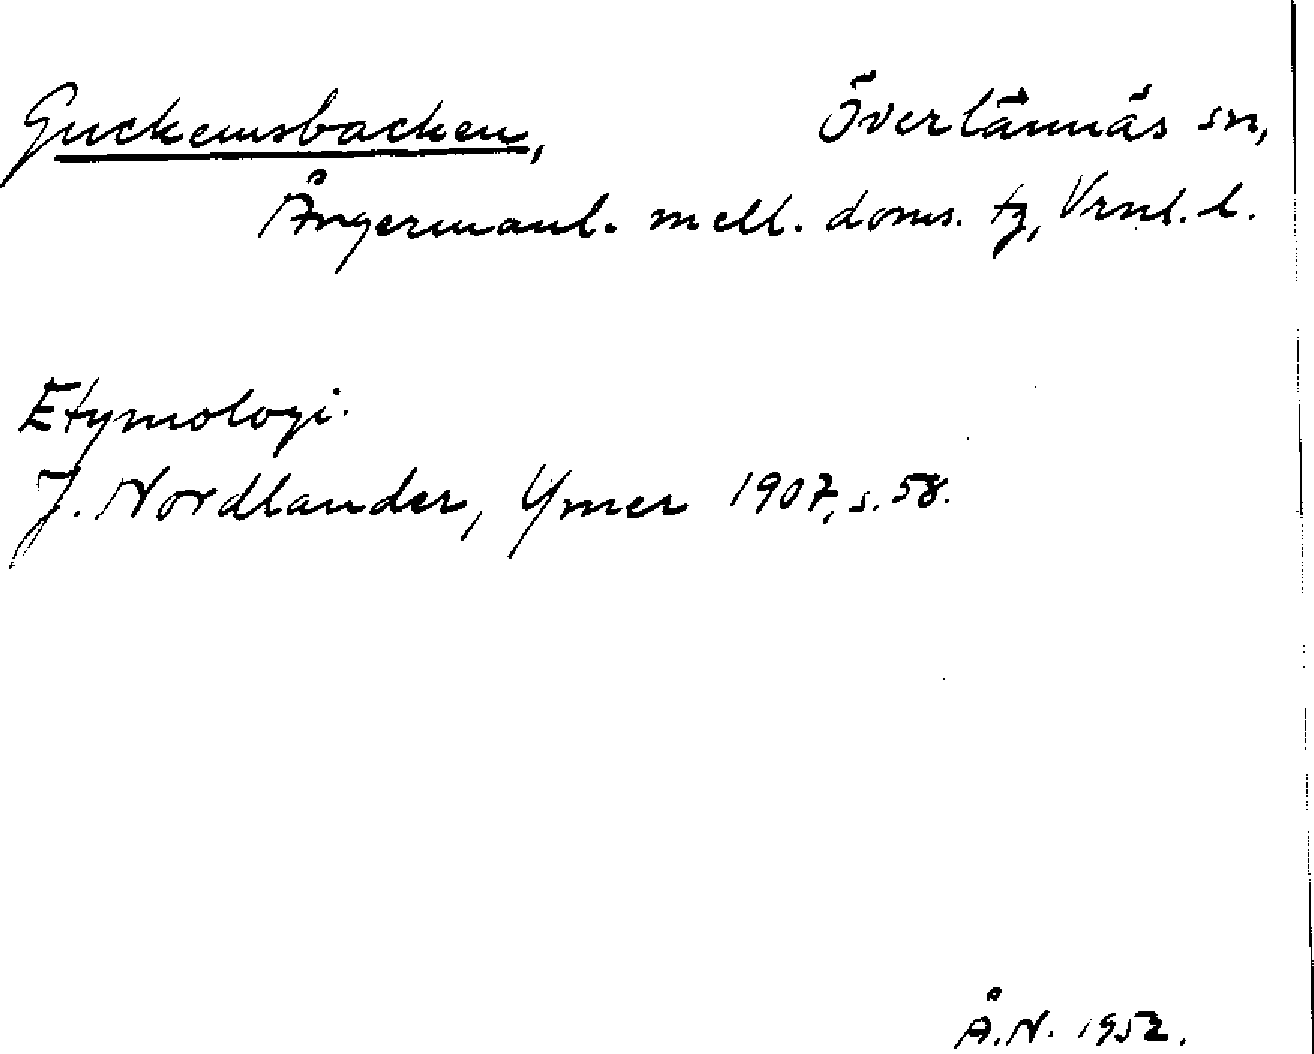 Guckemsbacken, Överlännäs sn,
Ångermanl. mell. doms. tg, Vrnl. l.
Etymologi.
J. Nordlander, Ymer 1907, s. 58.
Å.N. 1952.